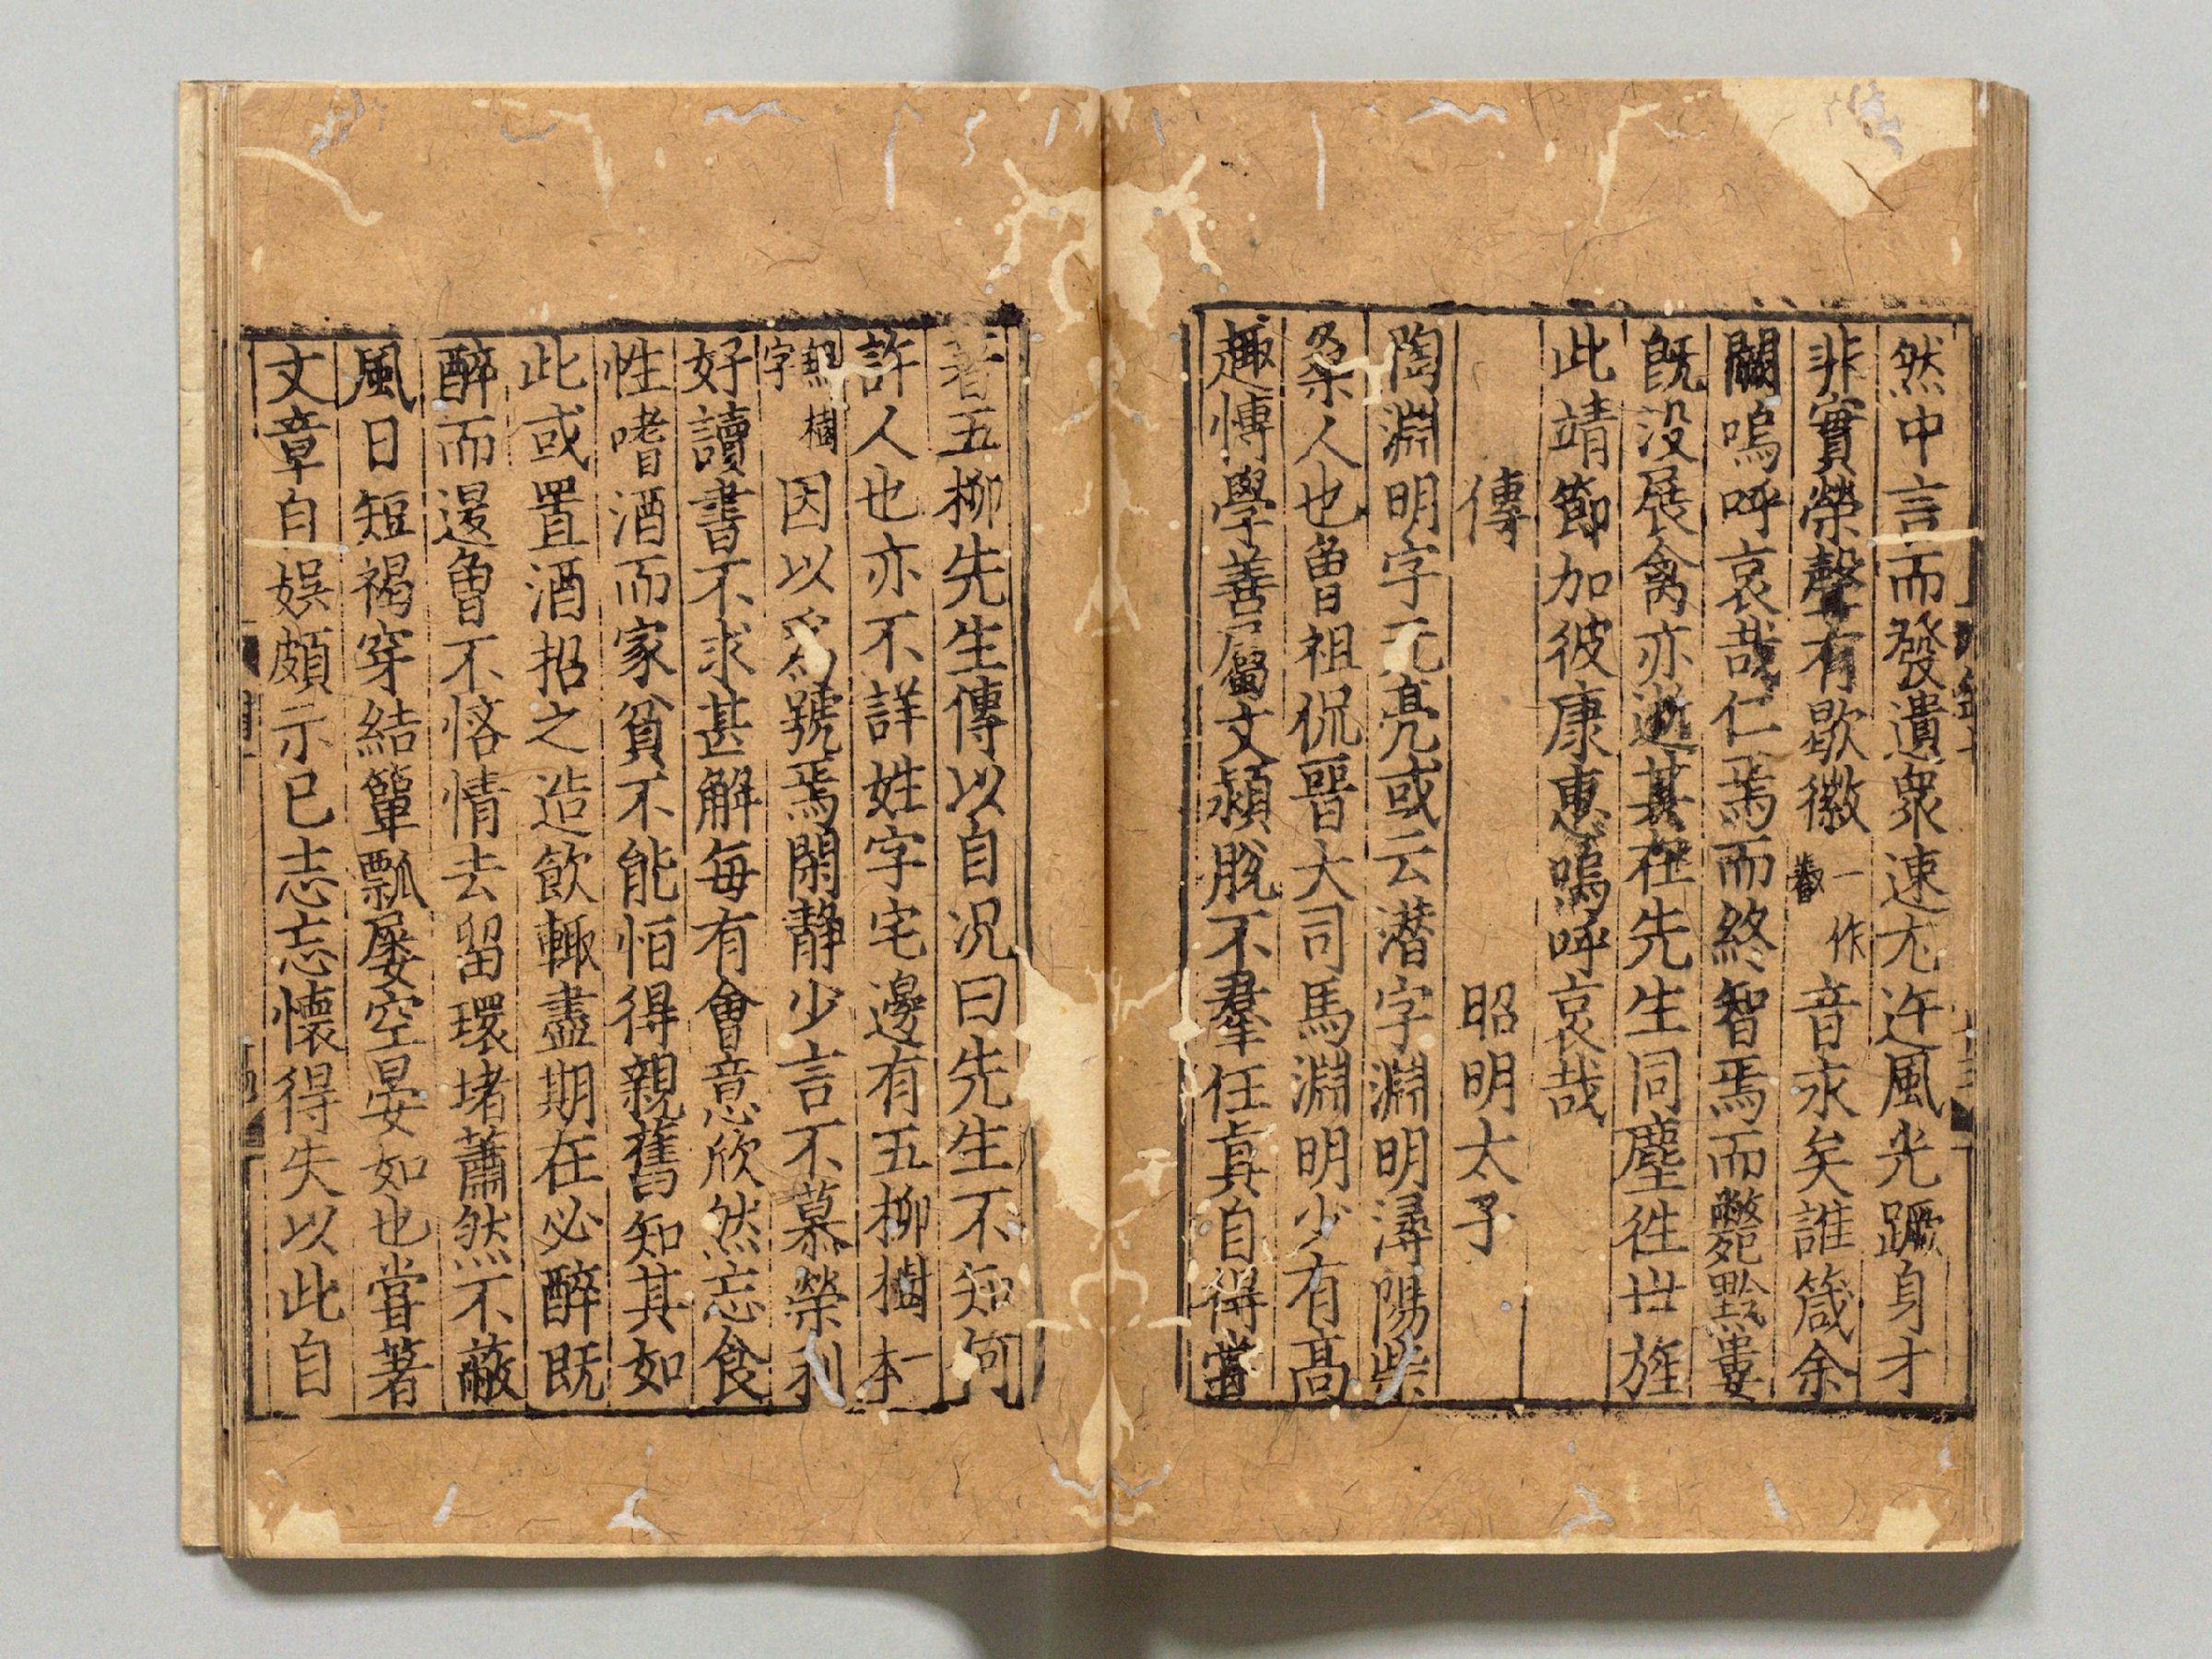 然中言而發違衆速尤迕風先蹶身才
非實榮聲有歇徽一作叡音永矣誰箴余
闕嗚呼哀哉仁焉而終智焉而斃黔婁
旣没展禽亦逝其在先生同塵徃丗旌
此靖節加彼康惠嗚呼哀哉
傳 昭明太子
陶淵明字元亮或云潜字淵明潯陽柴
桑人也曾祖侃晉大司馬淵明少有高
趣愽學善屬文穎脫不羣任眞自得甞
著五柳先生傳以自况曰先生不知何
許人也亦不詳姓字宅邊有五柳樹一本
無樹字因以爲號焉閑静少言不慕榮利
好讀書不求甚解每有會意欣然忘食
性嗜酒而家貧不能恒得親舊知其如
此或置酒招之造飲輙盡期在必醉旣
醉而退曾不悋情去留環堵蕭然不蔽
風日短褐穿結簞瓢屢空晏如也甞著
文章自娱頗示已志忘懷得失以此自